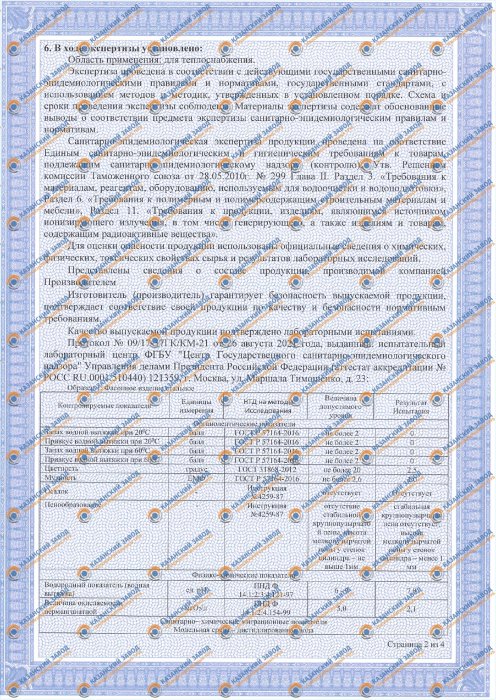 6. В ходе экспертизы установлено:
Область применения: для теплоснабжения.
Экспертиза проведена в соответствии с действующими государственными санитарно-
эпидемиологическими правилами и нормативами, государственными стандартами, с
использованием методов и методик, утвержденных в установленном порядке. Схема и
сроки проведения экспертизы соблюдены. Материалы экспертизы содержат обоснованные
выводы о соответствии предмета экспертизы санитарно-эпидемиологическим правилам и
нормативам.
Санитарно-эпидемиологическая экспертиза продукции проведена на соответствие
Единым санитарно-эпидемиологическим и гигиеническим требованиям к товарам,
подлежащим санитарно-эпидемиологическому надзору (контролю). Утв. Решением
комиссии Таможенного союза от 28.05.2010г. № 299 Глава II. Раздел 3. «Требования к
материалам, реагентам, оборудованию, используемым для водоочистки и водоподготовки»,
Раздел 6. «Требования к полимерным и полимерсодержащим строительным материалам и
мебели», Раздел 11. «Требования к продукции, изделиям, являющимся источником
ионизирующего излучения, в том числе генерирующего, а также изделиям и товарам,
содержащим радиоактивные вещества».
Для оценки опасности продукции использованы официальные сведения о химических,
физических, токсических свойствах сырья и результатов лабораторных исследований.
Представлены сведения о составе продукции, производимой компанией
Производителем
Изготовитель (производитель) гарантирует безопасность выпускаемой продукции,
подтверждает соответствие своей продукции по качеству и безопасности нормативным
требованиям.
Качество выпускаемой продукции подтверждено лабораторными испытаниями.
августа
выданный испытательный
лабораторный центр ФГБУ "Центр Государственного санитарно-эпидемиологического
надзора" Управления делами Президента Российской Федерации (аттестат аккредитации №
РОСС RU.0001.510440) 121359, г. Москва, ул. Маршала Тимошенко, д. 23:
Контролируемые показатели Единицы измерения НТД на методы Исследования Величина допустимого уровня Результат Испытания
Органолептические показатели
Запах водной вытяжки при 20°С балл ГОСТ Р 57164-2016 не более 2 0
Привкус водной вытяжки при 20°С балл ГОСТ Р 57164-2016 не более 2 0
Запах водной вытяжки при 60°С балл ГОСТ Р 57164-2016 не более 2 0
Привкус водной вытяжки при 60°С балл ГОСТ Р 57164-2016 не более 2 0
Цветность градус ГОСТ 31868-2012 не более 20
Мутность ЕМФ ГОСТ Р 57164-2016 не более 2,6
Осадок Инструкция №4259-87 отсутствует Отсутствует
Пенообразование Инструкция №4259-87 отсутствие стабильной крупнопузырчатой пены, высота мелкопузырчатой пены у стенок цилиндра – не выше 1мм стабильная крупнопузырчатая пена отсутствует, высота мелкопузырчатой пены у стенок цилиндра – менее 1 мм
Физико-химические показатели
Водородный показатель (водная вытяжка) ед. рН ПНД Ф 14.1:2:3:4.121-97
Величина окисляемости перманганатной
Санитарно – химические миграционные показатели
Модельная среда – дистиллированная вода
Страница 2 из 4
КАЗАНСКИЙ ЗАВОД